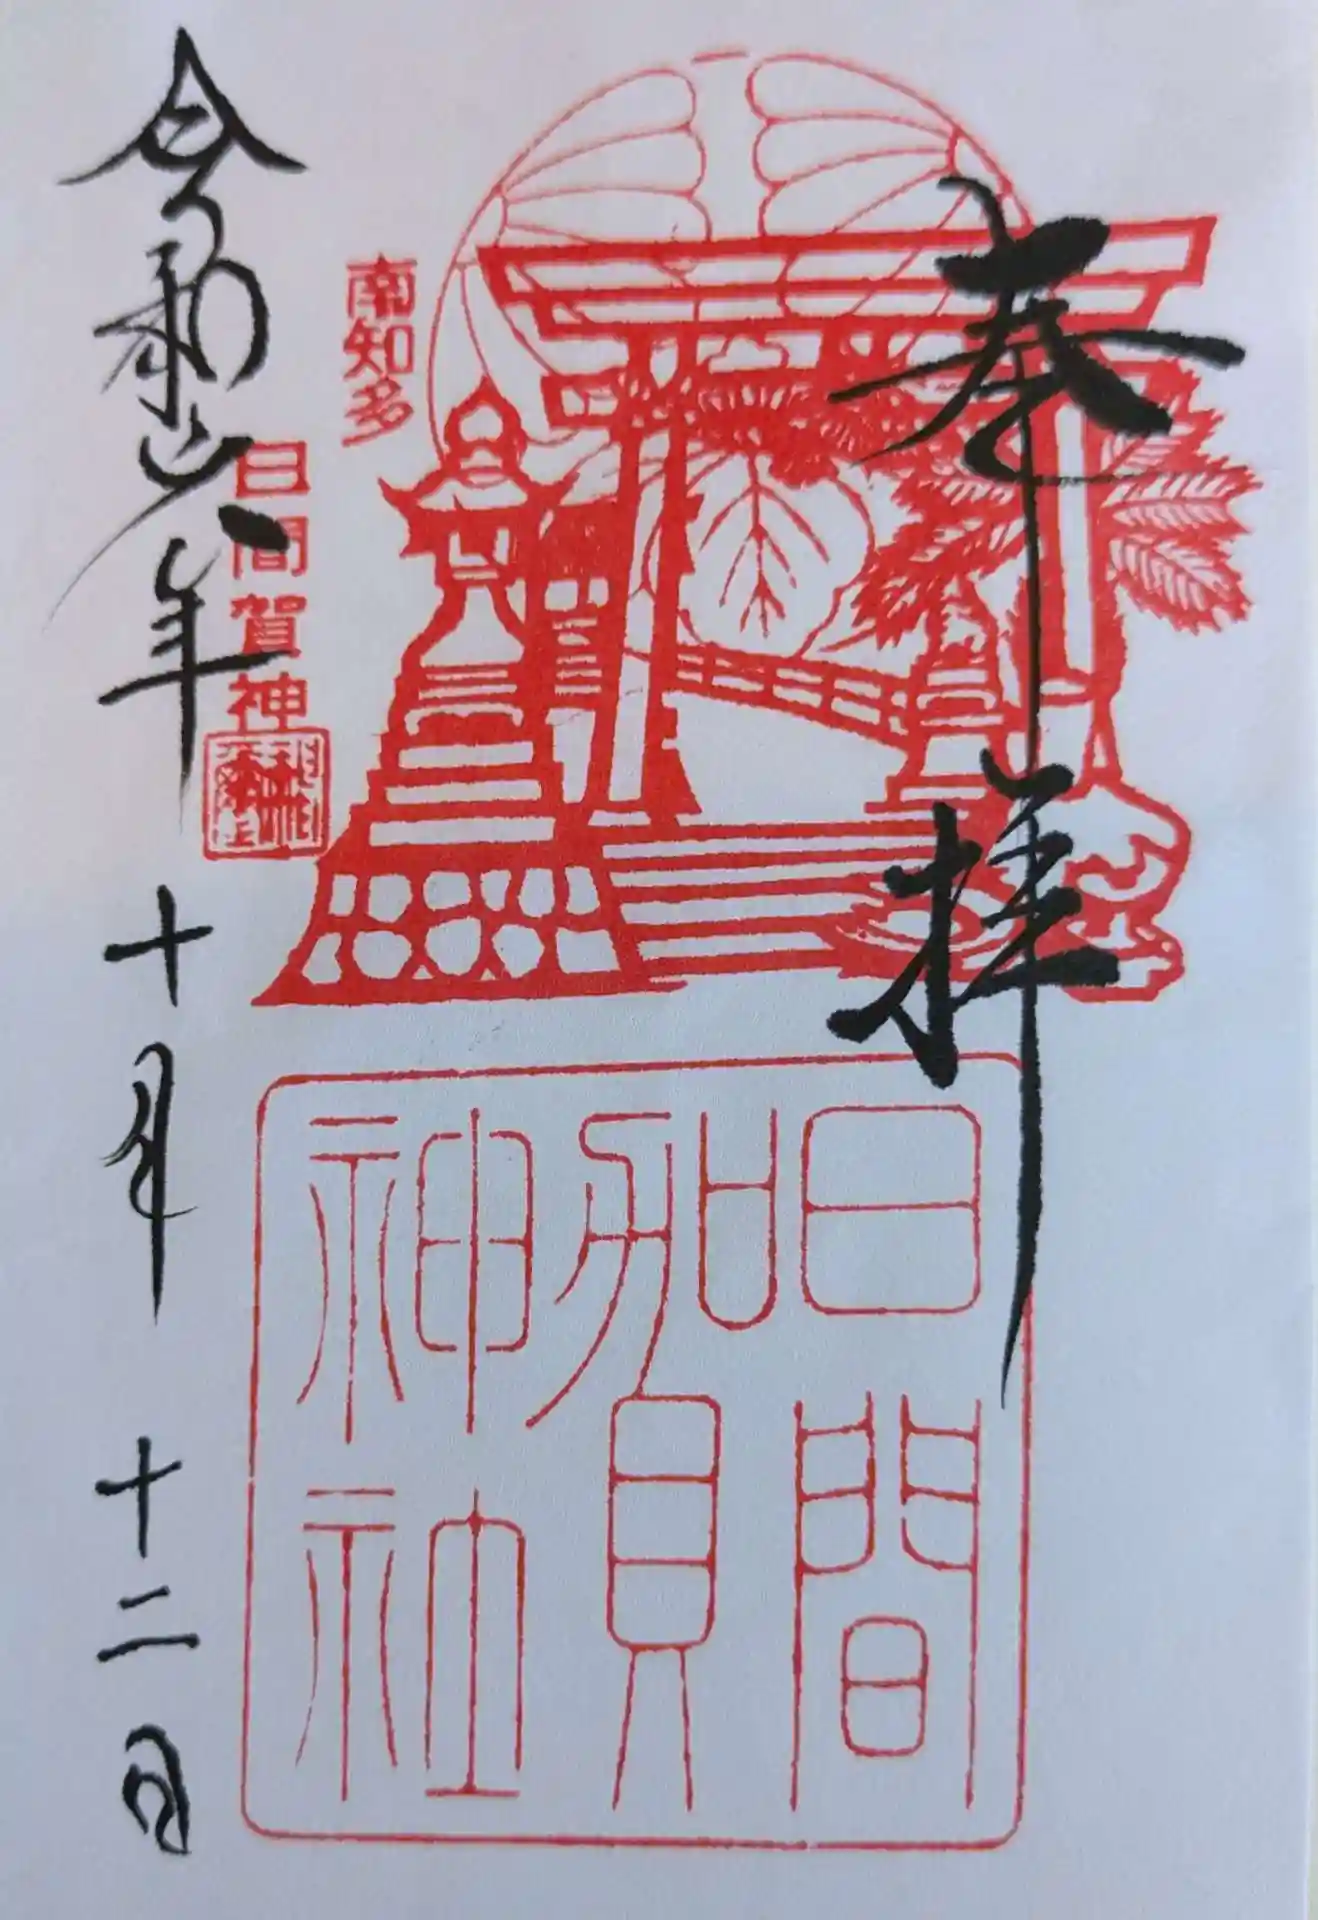 奉拝
南知多
日間賀神社
日間賀神社
令和六年 十月 十二日